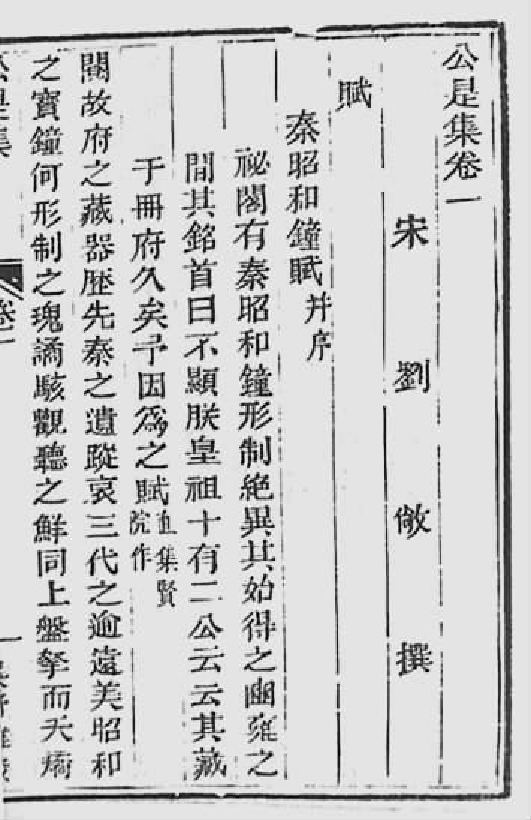 公是集卷一
宋劉敞撰
賦
秦昭和鐘賦并序
祕閣有秦昭和鐘形制絶異其始得之豳雍之
間其銘首曰不顯朕皇祖十有二公云云其藏
于冊府久矣予因爲之賦直集賢
院作
閱故府之藏器歴先秦之遺蹤哀三代之逾遠美昭和
之寶鐘何形制之瑰譎駭觀聽之鮮同上盤拏而夭矯